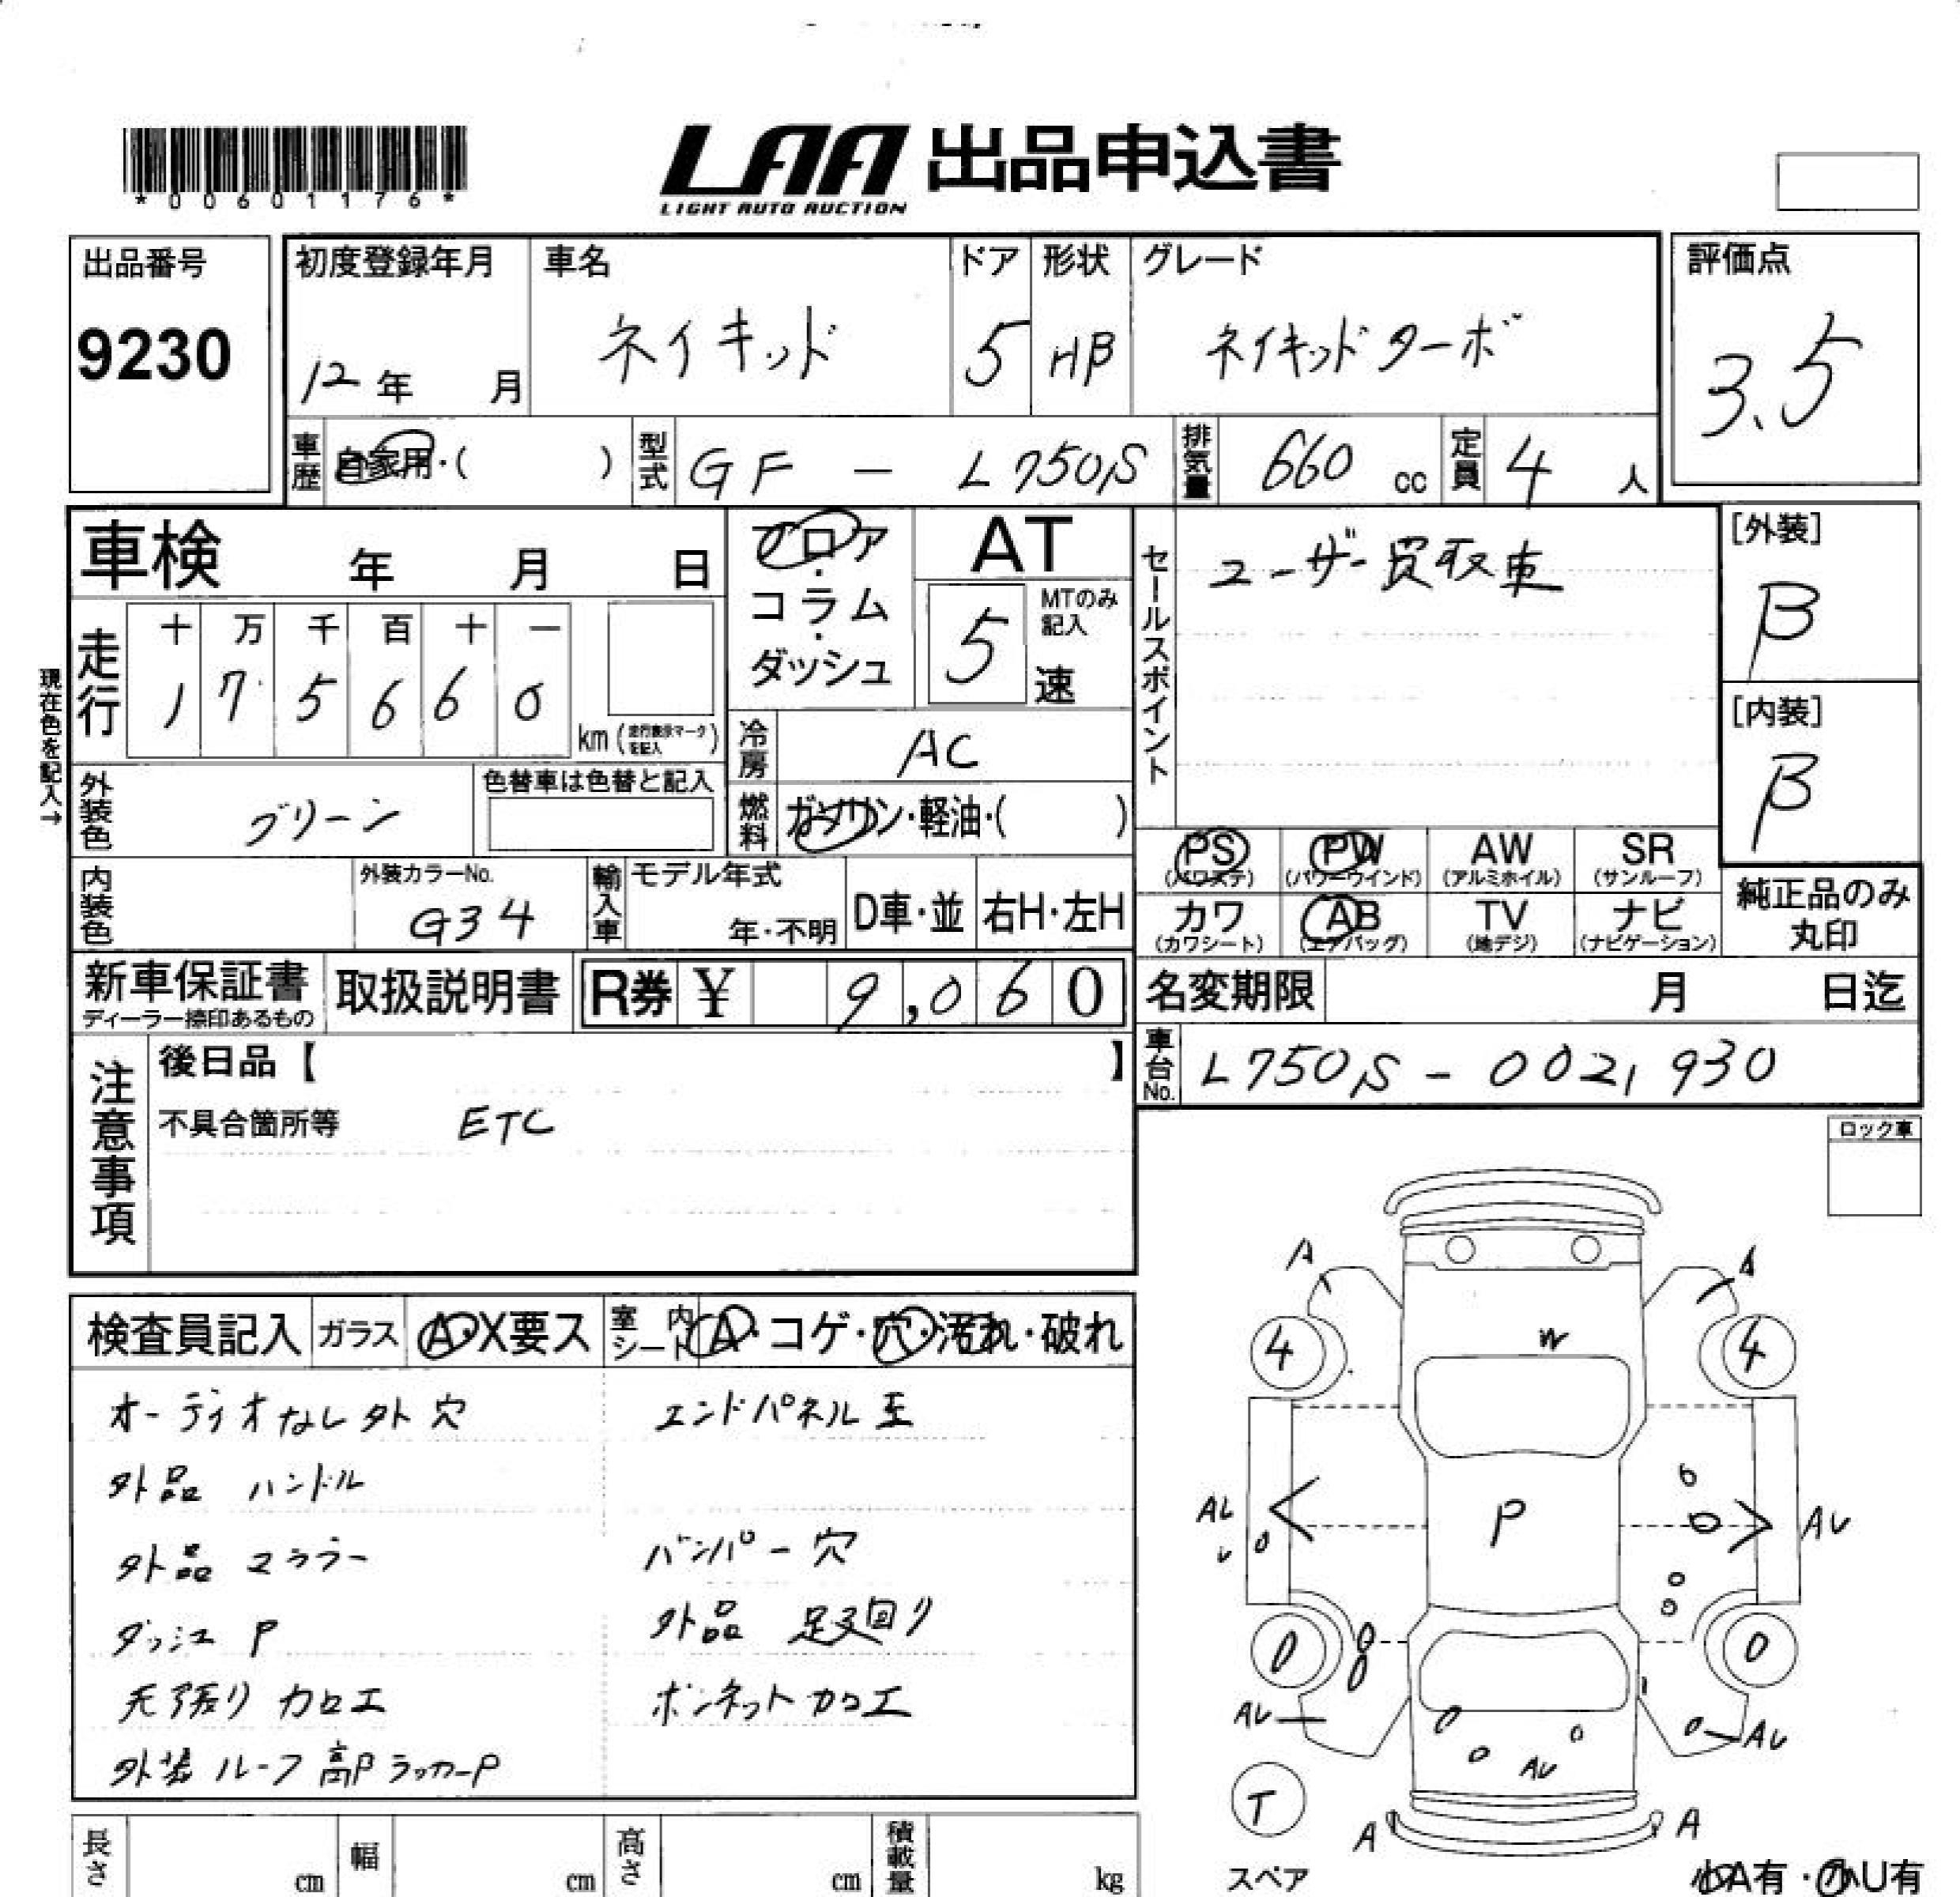 *00601176*
LAA 出品申込書
LIGHT AUTO AUCTION
出品番号
9230
初度登録年月
12年 月
車名
ネイキッド
ドア
5
形状
HB
グレード
ネイキッドターボ
評価点
3.5
車歴 自家用・( )
型式 GF - L750S
排気量 660 cc
定員 4 人
車検 年 月 日
フロア・コラム・ダッシュ
AT
5
MTのみ記入
速
セールスポイント
ユーザー買取車
[外装]
B
[内装]
B
現在色を記入→
走行
十 万 千 百 十 一
1 7 5 6 6 0
km (走行表示マークを記入)
冷房 AC
外装色 グリーン
色替車は色替と記入
燃料 ガソリン・軽油・( )
PS (パワステ)
PW (パワーウインド)
AW (アルミホイル)
SR (サンルーフ)
カワ (カワシート)
AB (エアバッグ)
TV (地デジ)
ナビ (ナビゲーション)
純正品のみ丸印
内装色
外装カラーNo.
G34
輸入車
モデル年式
年・不明
D車・並
右H・左H
新車保証書
ディーラー捺印あるもの
取扱説明書
R券 ¥ 9,060
名変期限 月 日迄
車台No. L750S - 0021930
注意事項
後日品【 】
不具合箇所等 ETC
ロック車
検査員記入
ガラス
A・X要ス
室内シート
A・コゲ・穴・汚れ・破れ
オーディオなし外穴
外品 ハンドル
外品 マフラー
ダッシュ P
天張り カロエ
外装 ルーフ 高P ラッカーP
エンドパネル 歪
バンパー 穴
外品 足廻り
ボンネットカロエ
A
A
4
W
4
AU
P
AU
0
0
AU
AU
AU
T
スペア
A
A
小A有・小U有
長さ cm
幅 cm
高さ cm
積載量 kg